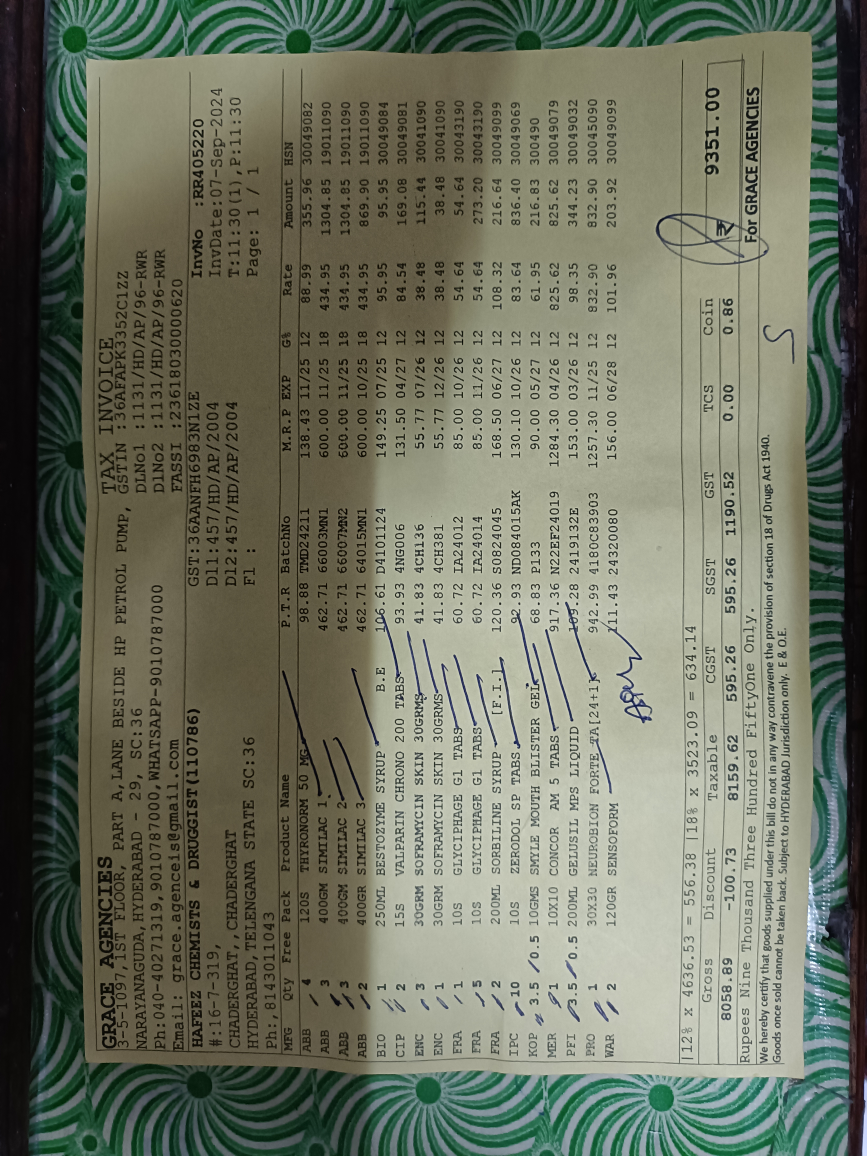 TAX INVOICE
GRACE AGENCIES
3-5-1097,1ST FLOOR, PART A,LANE BESIDE HP PETROL PUMP, GSTIN :36AFAPK3352C1ZZ
NARAYANAGUDA,HYDERABAD - 29, SC:36 DLNo1 :1131/HD/AP/96-RWR
Ph:040-40271319,9010787000,WHATSAPP-9010787000 DlNo2 :1131/HD/AP/96-RWR
Email: grace.agenceis@gmail.com FASSI :23618030000620
HAFEEZ CHEMISTS & DRUGGIST(110786) GST:36AANFH6983N1ZE InvNo :RR405220
#:16-7-319, D11:457/HD/AP/2004 InvDate:07-Sep-2024
CHADERGHAT,,CHADERGHAT D12:457/HD/AP/2004 T:11:30(1),P:11:30
HYDERABAD,TELENGANA STATE SC:36 Fl : Page: 1 / 1
Ph:,8143011043
MFG Qty Free Pack Product Name P.T.R BatchNo M.R.P EXP G% Rate Amount HSN
ABB 4 120S THYRONORM 50 MG 98.88 TMD24211 138.43 11/25 12 88.99 355.96 30049082
ABB 3 400GM SIMILAC 1 462.71 66003MN1 600.00 11/25 18 434.95 1304.85 19011090
ABB 3 400GM SIMILAC 2 462.71 66007MN2 600.00 11/25 18 434.95 1304.85 19011090
ABB 2 400GR SIMILAC 3 462.71 64015MN1 600.00 10/25 18 434.95 869.90 19011090
BIO 1 250ML BESTOZYME SYRUP B.E 106.61 D4101124 149.25 07/25 12 95.95 95.95 30049084
CIP 2 15S VALPARIN CHRONO 200 TABS 93.93 4NG006 131.50 04/27 12 84.54 169.08 30049081
ENC 3 30GRM SOFRAMYCIN SKIN 30GRMS 41.83 4CH136 55.77 07/26 12 38.48 115.44 30041090
ENC 1 30GRM SOFRAMYCIN SKIN 30GRMS 41.83 4CH381 55.77 12/26 12 38.48 38.48 30041090
FRA 1 10S GLYCIPHAGE G1 TABS 60.72 IA24012 85.00 10/26 12 54.64 54.64 30043190
FRA 5 10S GLYCIPHAGE G1 TABS 60.72 IA24014 85.00 11/26 12 54.64 273.20 30043190
FRA 2 200ML SORBILINE SYRUP [F.I.] 120.36 S0824045 168.50 06/27 12 108.32 216.64 30049099
IPC 10 10S ZERODOL SP TABS 92.93 ND084015AK 130.10 10/26 12 83.64 836.40 30049069
KOP 3.5 0.5 10GMS SMYLE MOUTH BLISTER GEL 68.83 P133 90.00 05/27 12 61.95 216.83 300490
MER 1 10X10 CONCOR AM 5 TABS 917.36 N22EF24019 1284.30 04/26 12 825.62 825.62 30049079
PFI 3.5 0.5 200ML GELUSIL MPS LIQUID 109.28 2419132E 153.00 03/26 12 98.35 344.23 30049032
PRO 1 30X30 NEUROBION FORTE TA[24+1] 942.99 4180C83903 1257.30 11/25 12 832.90 832.90 30045090
WAR 2 120GR SENSOFORM 111.43 24320080 156.00 06/28 12 101.96 203.92 30049099
|12% x 4636.53 = 556.38 |18% x 3523.09 = 634.14
Gross Discount Taxable CGST SGST GST TCS Coin
8058.89 -100.73 8159.62 595.26 595.26 1190.52 0.00 0.86 ₹ 9351.00
Rupees Nine Thousand Three Hundred FiftyOne Only.
For GRACE AGENCIES
We hereby certify that goods supplied under this bill do not in any way contravene the provision of section 18 of Drugs Act 1940.
Goods once sold cannot be taken back. Subject to HYDERABAD Jurisdiction only. E & O.E.